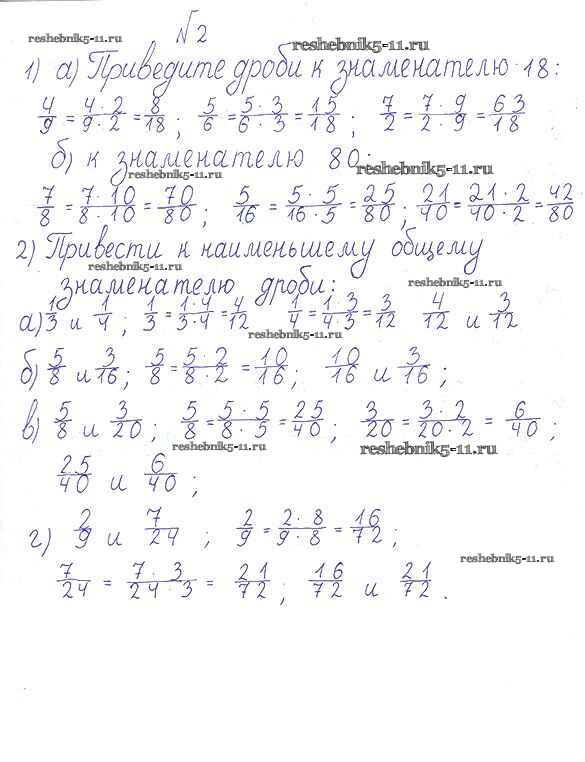 №2
reshebnik5-11.ru reshebnik5-11.ru
1) а) Приведите дроби к знаменателю 18:
4/9 = 4·2/9·2 = 8/18; 5/6 = 5·3/6·3 = 15/18; 7/2 = 7·9/2·9 = 63/18
б) к знаменателю 80:
reshebnik5-11.ru reshebnik5-11.ru
7/8 = 7·10/8·10 = 70/80; 5/16 = 5·5/16·5 = 25/80; 21/40 = 21·2/40·2 = 42/80
2) Привести к наименьшему общему
reshebnik5-11.ru reshebnik5-11.ru
знаменателю дроби:
а) 1/3 и 1/4; 1/3 = 1·4/3·4 = 4/12 1/4 = 1·3/4·3 = 3/12 4/12 и 3/12
reshebnik5-11.ru
б) 5/8 и 3/16; 5/8 = 5·2/8·2 = 10/16; 10/16 и 3/16;
в) 5/8 и 3/20; 5/8 = 5·5/8·5 = 25/40; 3/20 = 3·2/20·2 = 6/40;
reshebnik5-11.ru reshebnik5-11.ru
25/40 и 6/40;
г) 2/9 и 7/24; 2/9 = 2·8/9·8 = 16/72;
reshebnik5-11.ru
7/24 = 7·3/24·3 = 21/72; 16/72 и 21/72.